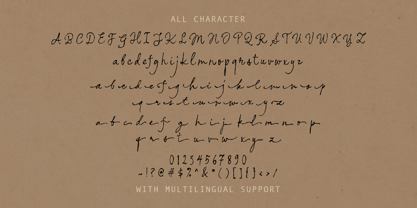 ALL CHARACTER
A B C D E F G H I J K L M N O P Q R S T U V W X Y Z
a b c d e f g h i j k l m n o p q r s t u v w x y z
a b c d e f g h i j k l m n o p
q r s t u v w x y z
a b c d e f g h i j k l m n o p
q r s t u v w x y z
0 1 2 3 4 5 6 7 8 9 0
WITH MULTILINGUAL SUPPORT